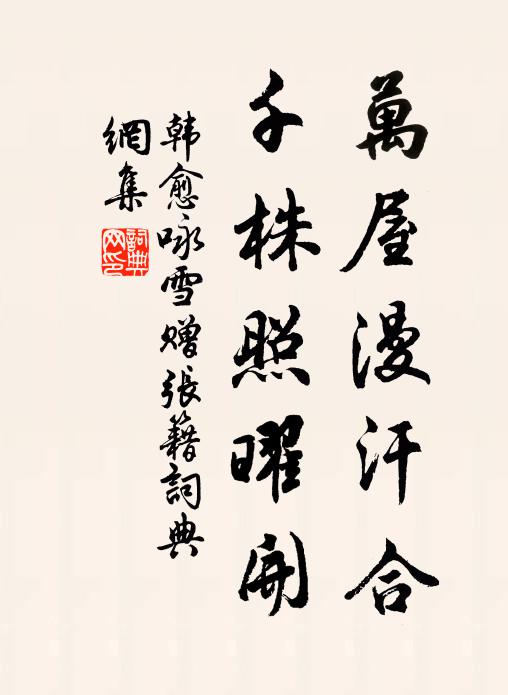 萬屋漫汗合
千株照曜開
韩愈咏雪赠張籍詞典
網集
詞典網印